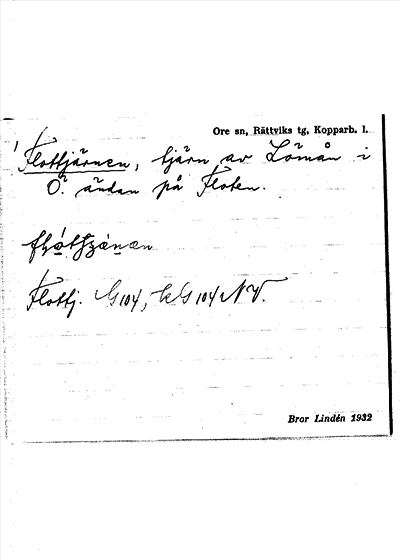 Ore sn, Rättviks tg, Kopparb. l.
Flottjärnen, tjärn av Lömån i
Ö. ändan på Floten.
Flottj. G 104, kG 104 NV.
Bror Lindén 1932